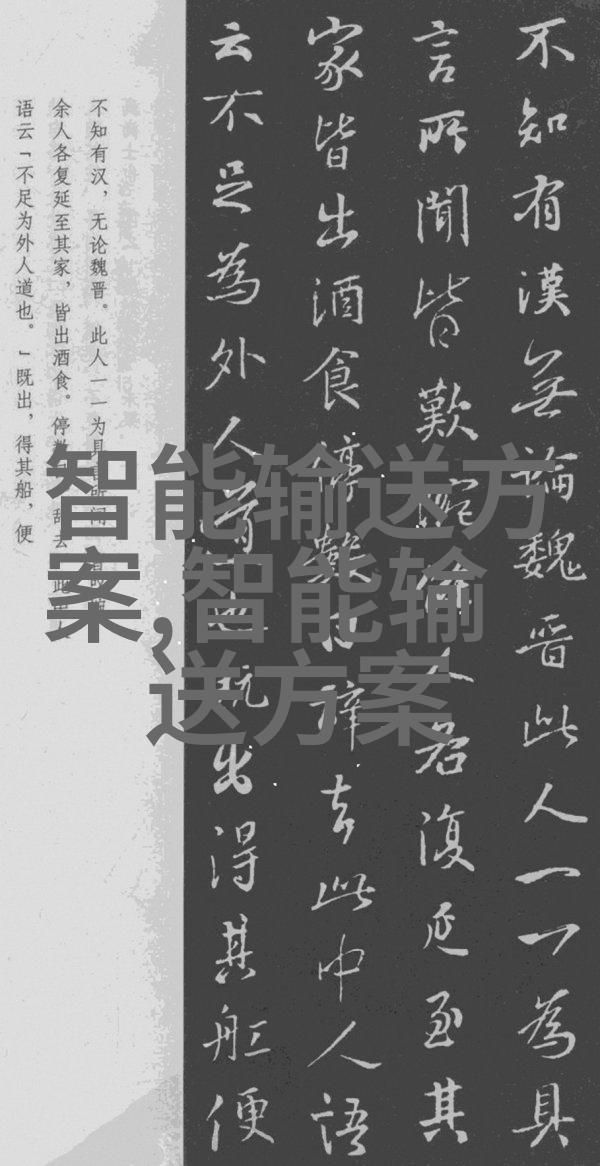 不知有漢無論魏晋此人一一為具
言所聞皆歎惋餘人各復延至其
家皆出酒食停數日辞去此中人語
云不足為外人道也既出得其舡便
不知有汉，无论魏晋。此人一一为具言所闻
余人各复延至其家，皆出酒食。停数日，辞去。此
语云「不足为外人道也。」既出，得其船，便
智能输送方
案,智能输
送方案